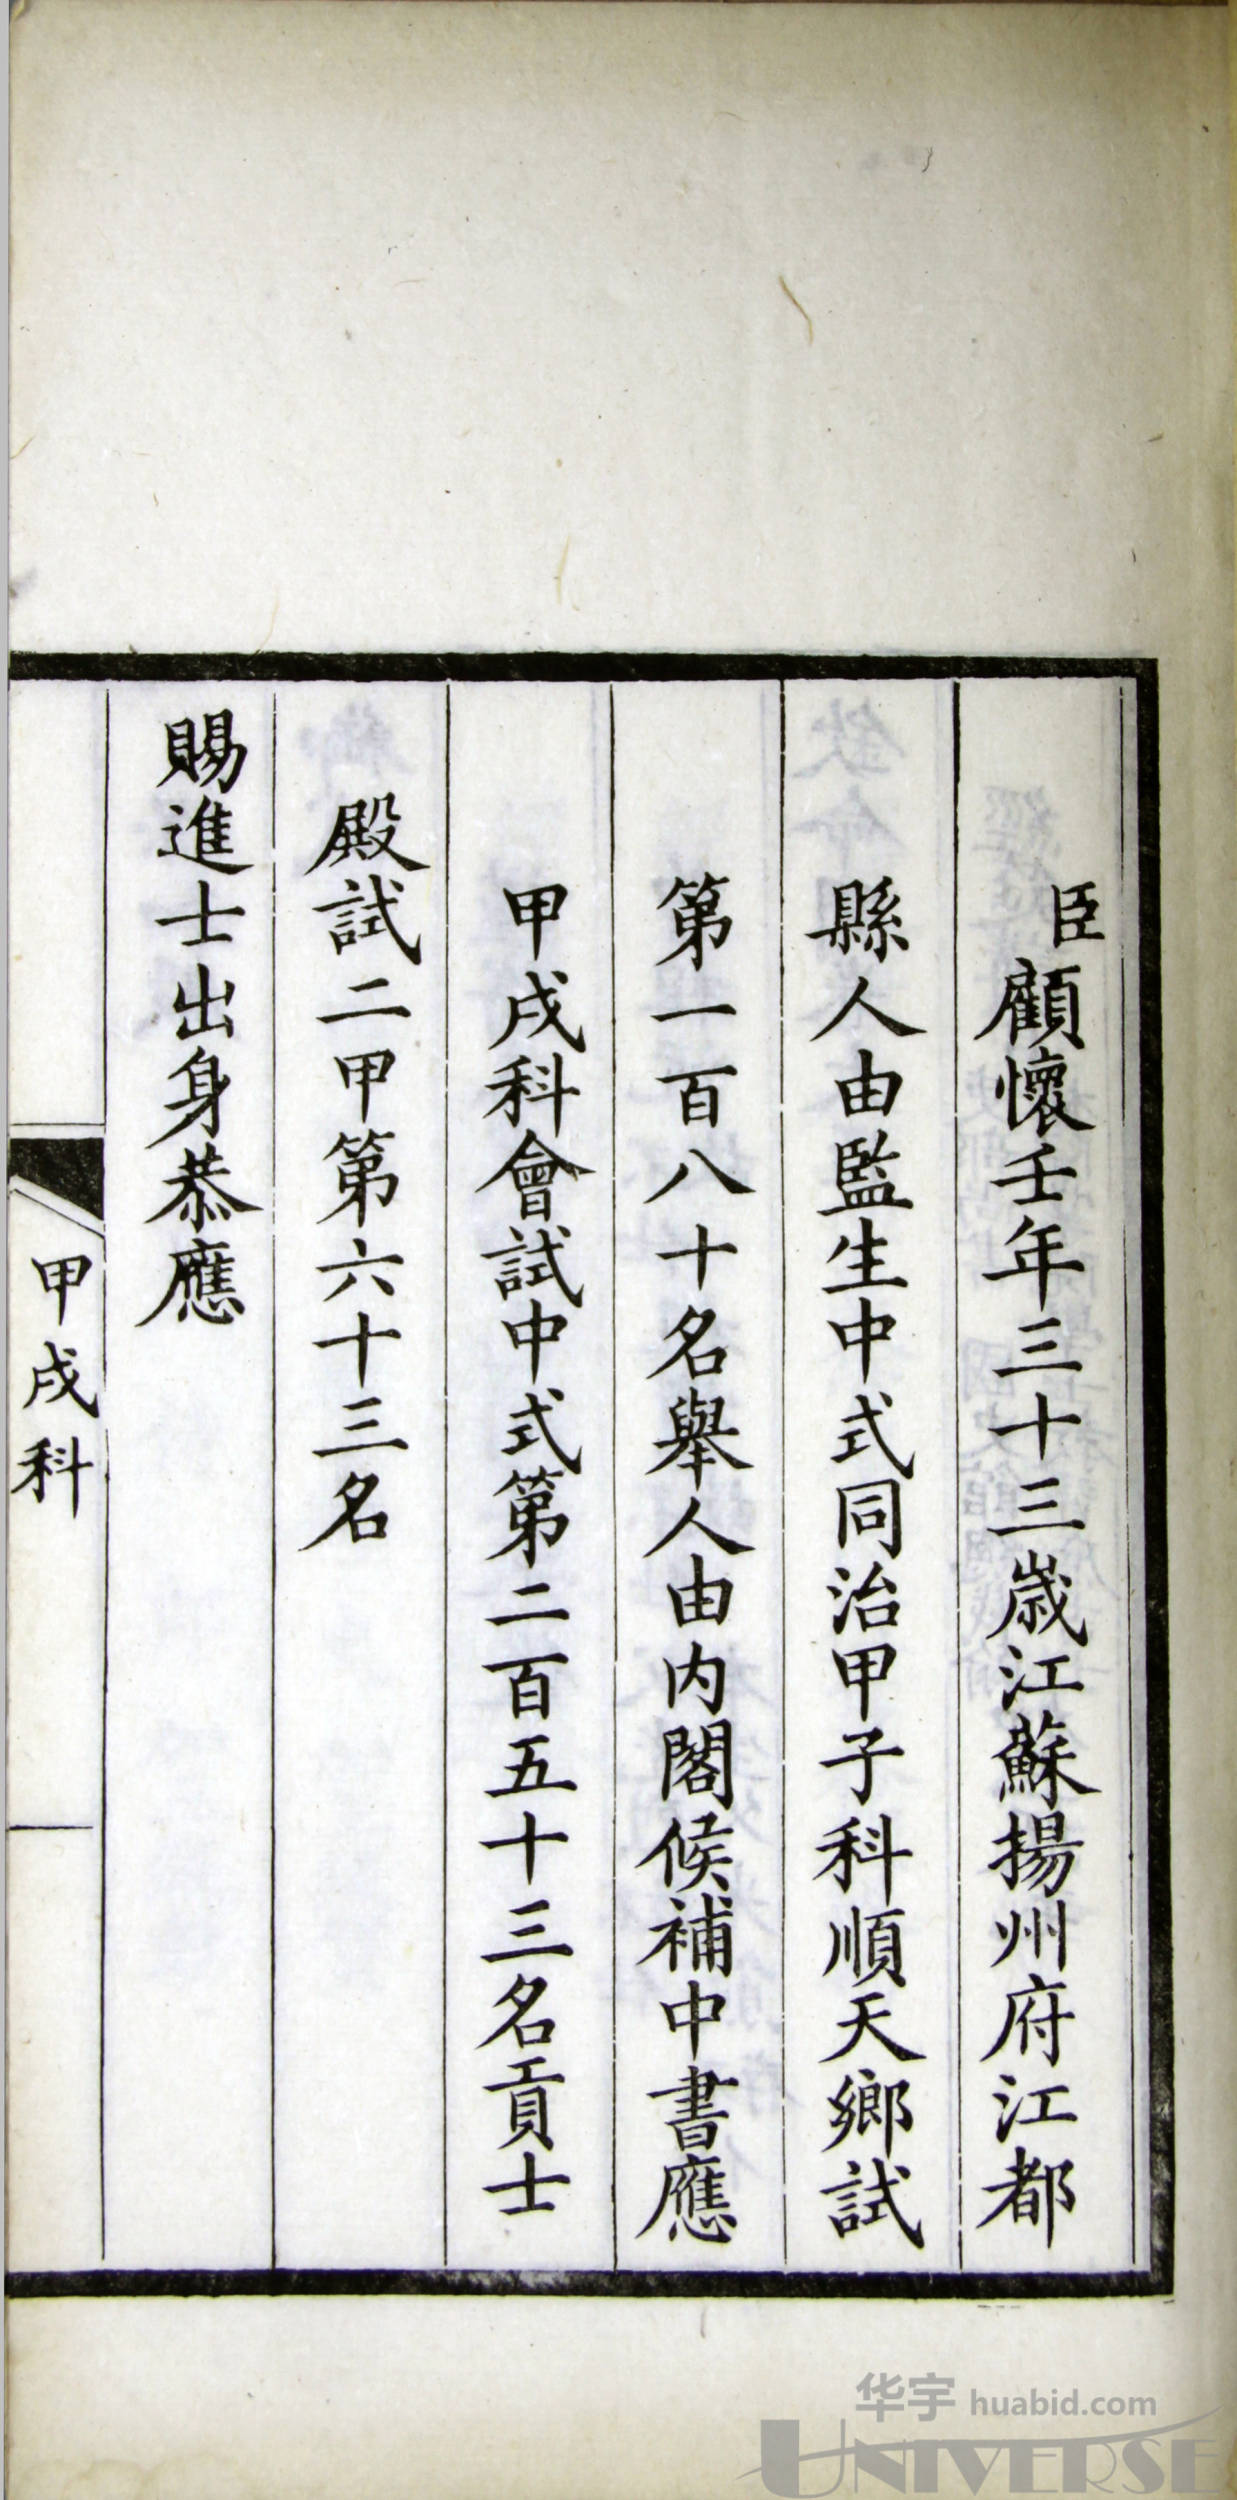 臣顧懷壬年三十三歲江蘇揚州府江都
縣人由監生中式同治甲子科順天鄉試
第一百八十名舉人由內閣候補中書應
甲戌科會試中式第二百五十三名貢士
殿試二甲第六十三名
賜進士出身恭應
甲戌科
华宇 huabid.com
UNIVERSE